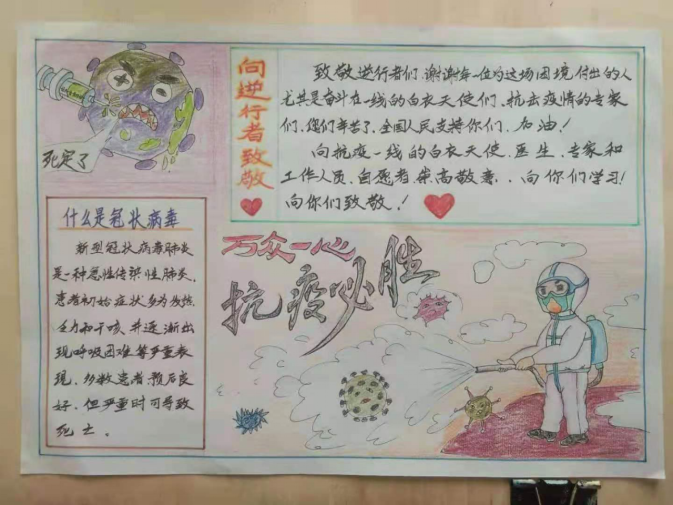 死定了
向逆行者致敬
致敬逆行者们,谢谢每一位为这场困境付出的人
尤其是奋斗在一线的白衣天使们、抗击疫情的专家
们,您们辛苦了,全国人民支持你们,加油!
向抗疫一线的白衣天使、医生、专家和
工作人员、自愿者崇高敬意...向你们学习!
向你们致敬!
什么是冠状病毒
新型冠状病毒肺炎
是一种恶性传染性肺炎,
患者初始症状多为发热、
乏力和干咳,并逐渐出
现呼吸困难等严重表
现。多数患者预后良
好,但严重时可导致
死亡。
万众一心
抗疫必胜